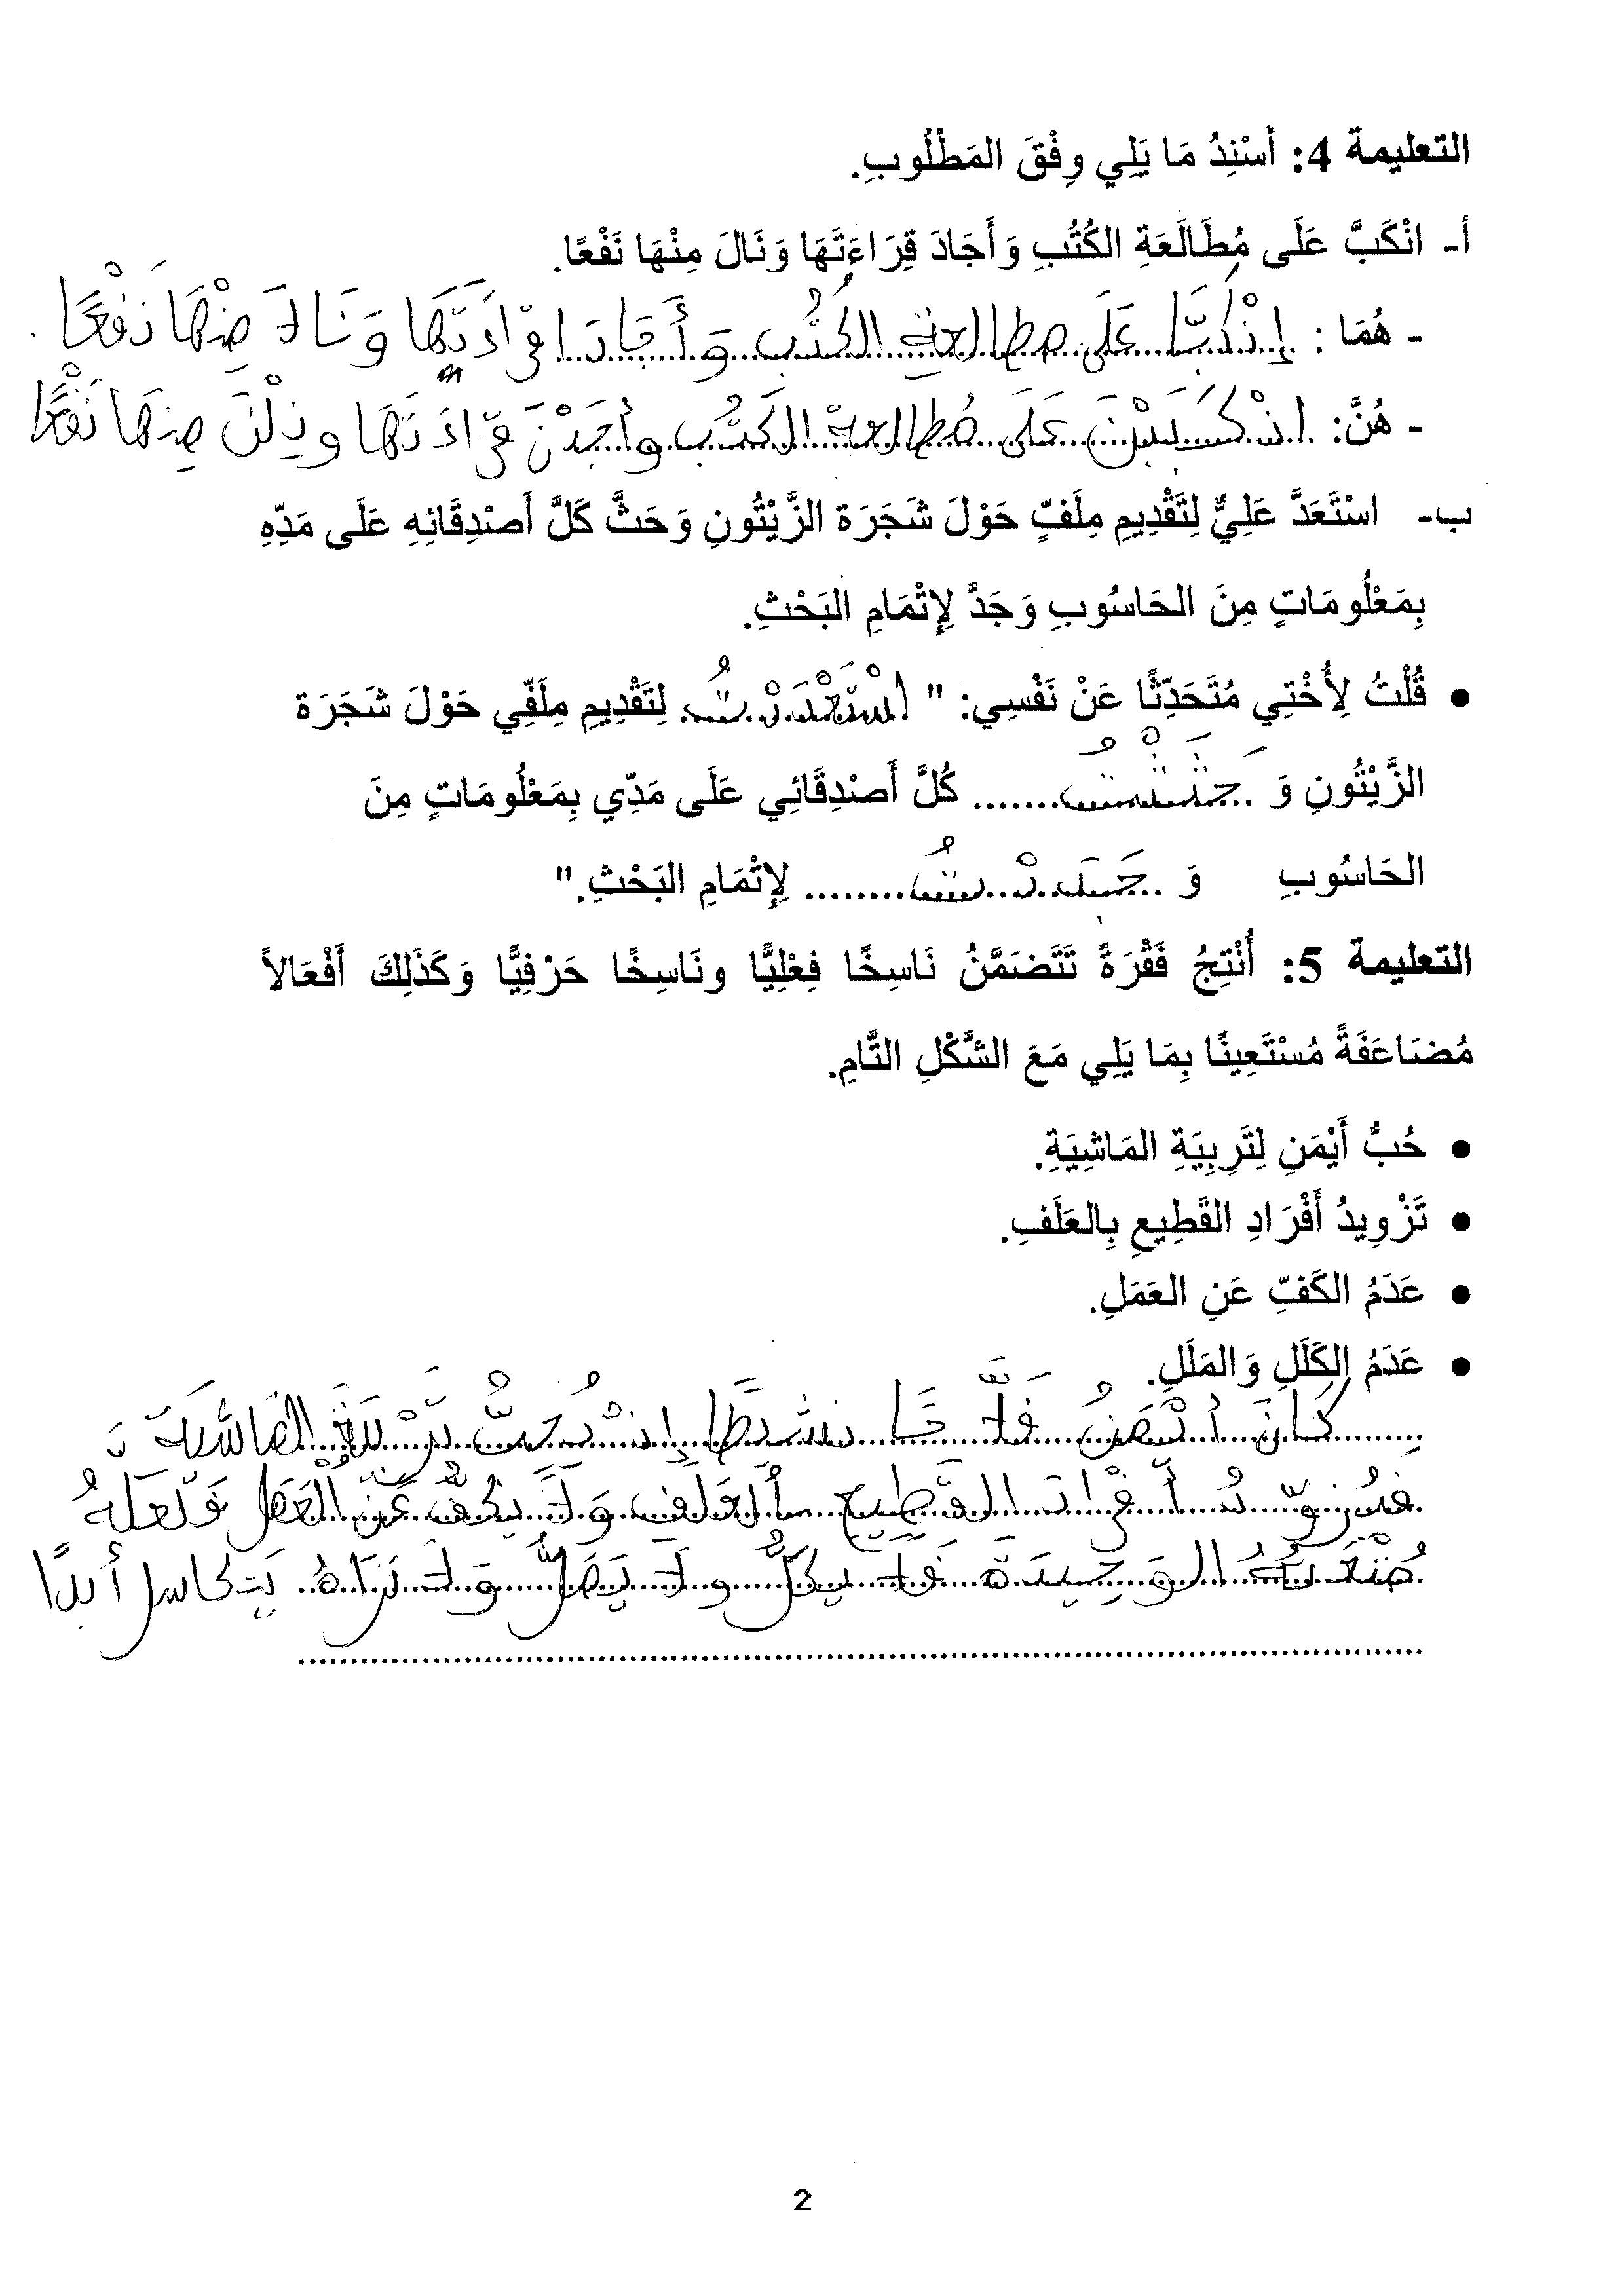 التعليمة 4: أَسْنِدُ مَا يَلِي وِفْقَ المَطْلُوبِ.
أ- انْكَبَّ عَلَى مُطَالَعَةِ الكُتُبِ وَأَجَادَ قِرَاءَتَهَا وَنَالَ مِنْهَا نَفْعًا.
- هُمَا : إِنْكَبَّا عَلَى مطالعة الكُتُب وَأَجَادَا قرَاءَتَهَا وَنَالَا مِنْهَا نَفْعًا
- هُنَّ: انْكَبَبْنَ عَلَى مُطالعة الكُتُب وأجَدْنَ قرَاءَتَهَا ونِلْنَ مِنهَا نَفْعًا
ب- اسْتَعَدَّ عَلِيٌّ لِتَقْدِيمِ مِلَفٍّ حَوْلَ شَجَرَة الزَّيْتُونِ وَحَثَّ كَلَّ أَصْدِقَائِهِ عَلَى مَدِّهِ
بِمَعْلُومَاتٍ مِنَ الحَاسُوبِ وَجَدَّ لِإِتْمَامِ البَحْثِ.
• قُلْتُ لِأُخْتِي مُتَحَدِّثًا عَنْ نَفْسِي: " اسْتَعْدَدْتُ لِتَقْدِيمِ مِلَفِّي حَوْلَ شَجَرَة
الزَّيْتُونِ وَ حَثَثْتُ ....... كُلَّ أَصْدِقَائِي عَلَى مَدِّي بِمَعْلُومَاتٍ مِنَ
الحَاسُوبِ وَ جَدَدْتُ ........ لِإِتْمَامِ البَحْثِ."
التعليمة 5: أُنْتِجُ فَقْرَةً تَتَضَمَّنُ نَاسِخًا فِعْلِيًّا ونَاسِخًا حَرْفِيًّا وَكَذَلِكَ أَفْعَالاً
مُضَاعَفَةً مُسْتَعِينًا بِمَا يَلِي مَعَ الشَّكْلِ التَّامِ.
• حُبُّ أَيْمَنِ لِتَرِبِيَةِ المَاشِيَةِ.
• تَزْوِيدُ أَفْرَادِ القَطِيعِ بِالعَلَفِ.
• عَدَمُ الكَفِّ عَنِ العَمَلِ.
• عَدَمُ الكَلَلِ وَالمَلَلِ.
كَانَ أَيْمَنُ فَلَّاحًا نشيطًا يُحِبُّ تَرْبيَةَ المَاشيَةَ
فيُزوّدُ أَفْرَادَ القَطِيع بالعَلَفِ وَلَا يكفُّ عَنْ العَمَل فَلَعَلَهُ
مُتْعَتُهُ الوَحِيدَة فَلَا يكلُّ ولَا يَمَلُّ وَلَا نَرَاهُ يَتكاسل أبدًا
2